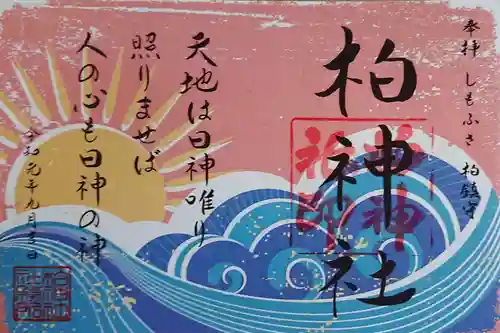 奉拝 しもふさ 柏鎮守
柏神社
天地は日神唯り
照りませば
人の心も日神の神
令和元年九月